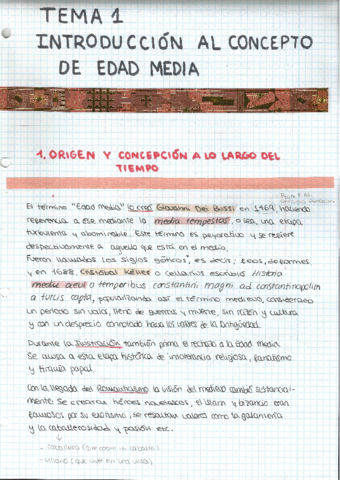 TEMA 1
INTRODUCCIÓN AL CONCEPTO
DE EDAD MEDIA
1. ORIGEN Y CONCEPCIÓN A LO LARGO DEL
TIEMPO
El término "Edad Media" lo creó Giovanni Dei Bussi en 1469, haciendo
referencia a ese mediante la media tempestas, o sea, una etapa
turbulenta y abominable. Este término es peyorativo y se refiere
despectivamente a aquello que está en el medio.
Fueron llamados los siglos góticos", es decir, feos, deformes,
y en 1688, Cristobal Keller o cellarius escribió Historia
medii aevui a temporibus constantini magni ad constantinoplim
a turcis capta, popularizando así el término medievo, considerado
un periodo sin valor, lleno de guerras y muerte, sin razón y cultura
y con un desprecio connotado hacia los valores de la Antigüedad.
Durante la Ilustración también prima el rechazo a la Edad Media.
Se acusa a esta etapa histórica de intolerancia religiosa, fanatismo
y tiranía papal.
Con la llegada del Romanticismo la visión del medievo cambió sustancial-
mente: Se crearon héroes novelescos, el Islam y bizancio eran
famosos por su exotismo, se resaltan valores como la galantería
y la caballerosidad y pasión etc.
- caballero (
- villano (que vive en una villa)